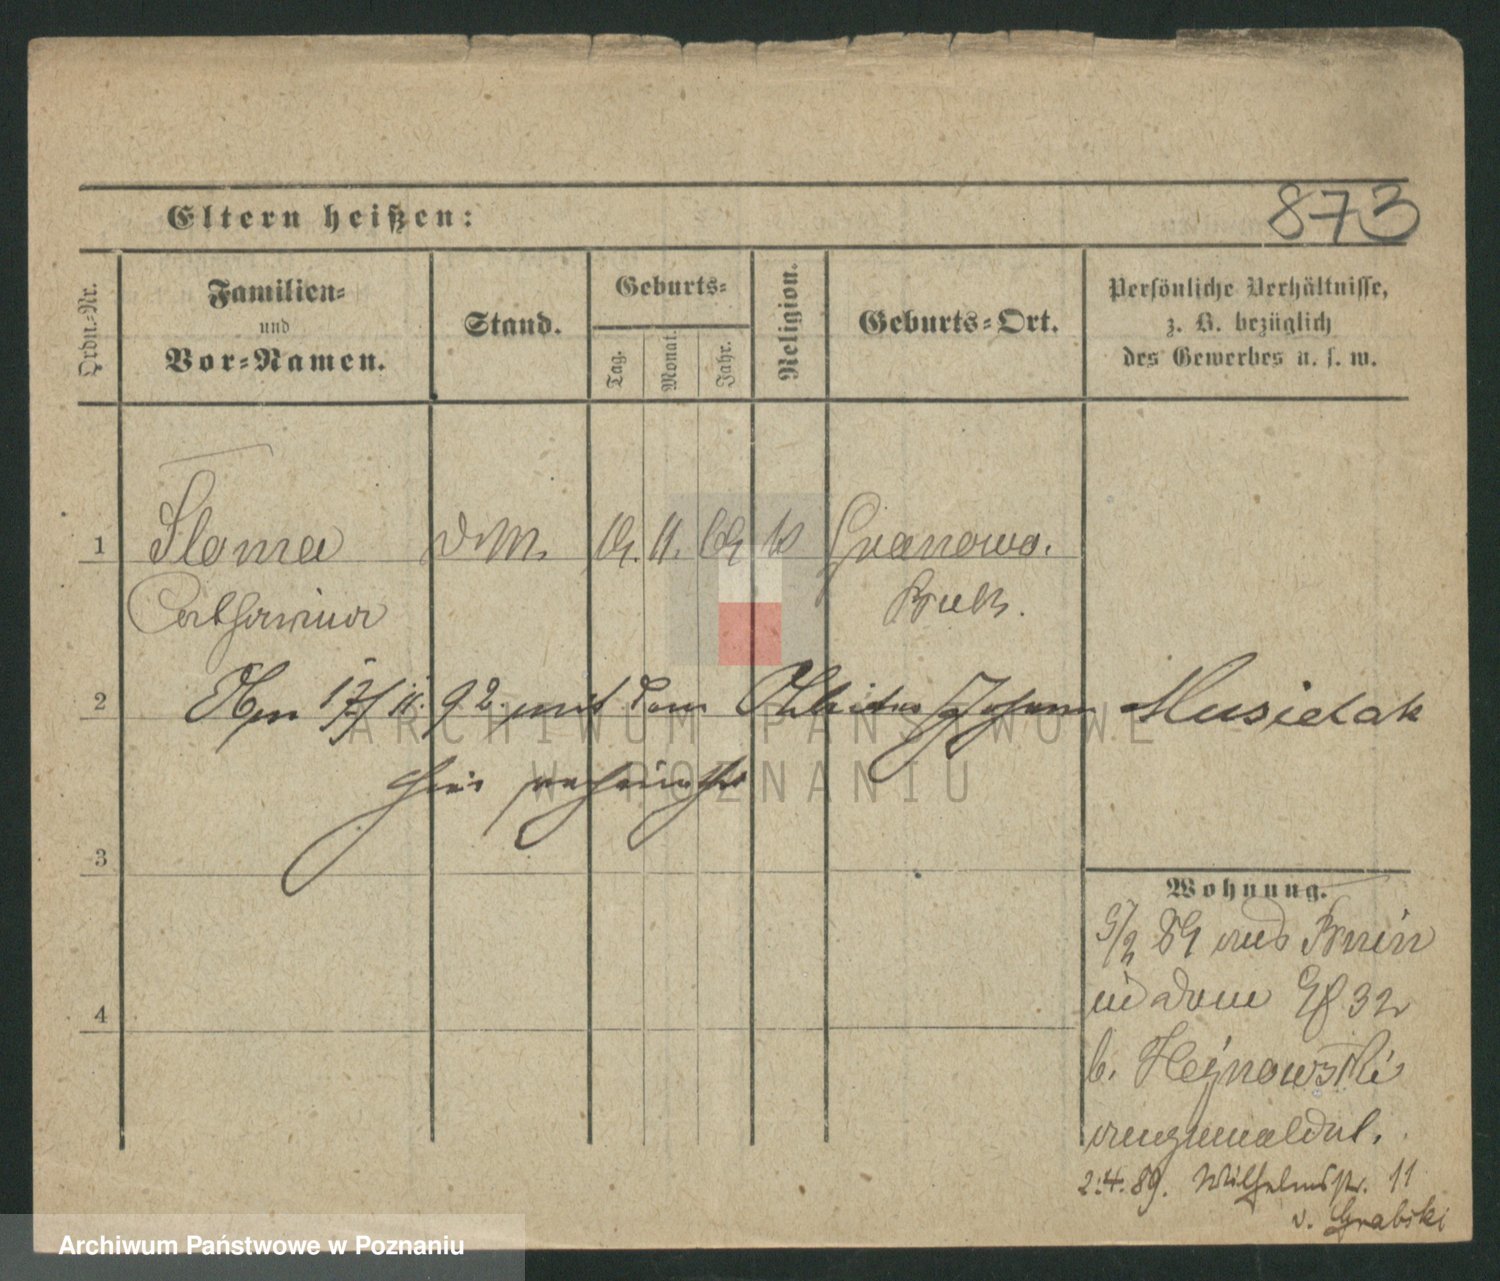 873
Eltern heißen:
Ordn.-Nr.
Familien-
und
Vor-Namen.
Stand.
Geburts-
Tag.
Monat.
Jahr.
Religion.
Geburts-Ort.
Persönliche Verhältnisse,
z. B. bezüglich
des Gewerbes u. s. w.
1
Sloma
11.
Granowo.
Catharina
Buk.
2
Am 17/11. 92. mit dem Arbeiter Johann Musielak
hier verheirathet
3
Wohnung.
89 aus Bnin
4
32
b.
angemeldet.
2.4.89. Wilhelmstr. 11
v. Grabski
ARCHIWUM PAŃSTWOWE
W POZNANIU
Archiwum Państwowe w Poznaniu